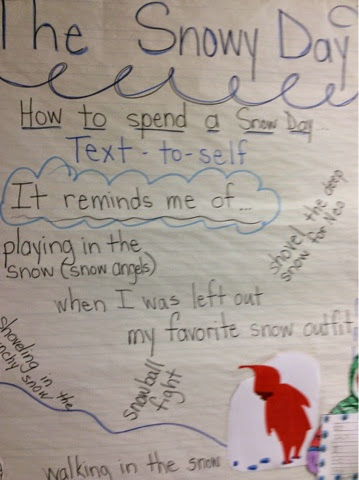 The Snowy Day
How to spend a Snow Day...
Text-to-self
It reminds me of...
playing in the
snow (snow angels)
shovel the deep
snow for Neo
when I was left out
my favorite snow outfit
shoveling in the
snow
snowball
fight
walking in the snow